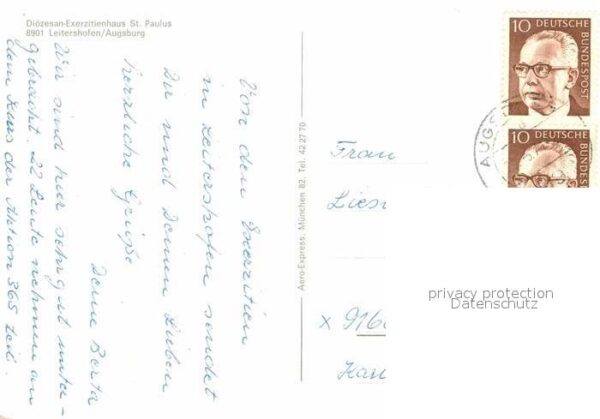 Diözesan-Exerzitienhaus St. Paulus
8901 Leitershofen/Augsburg
Von den Exerzitien
in Leitershofen sendet
Dir und Deinen Lieben
herzliche Grüße
Deine Berta
Wir sind hier sehr gut unter-
gebracht. 22 Leute nehmen an
dem Kurs der Aktion 365 teil.
Aero-Express, München 82, Tel. 42 27 70
10 DEUTSCHE BUNDESPOST
10 DEUTSCHE
AUGS
Frau
Lies
x 916
privacy protection
Datenschutz